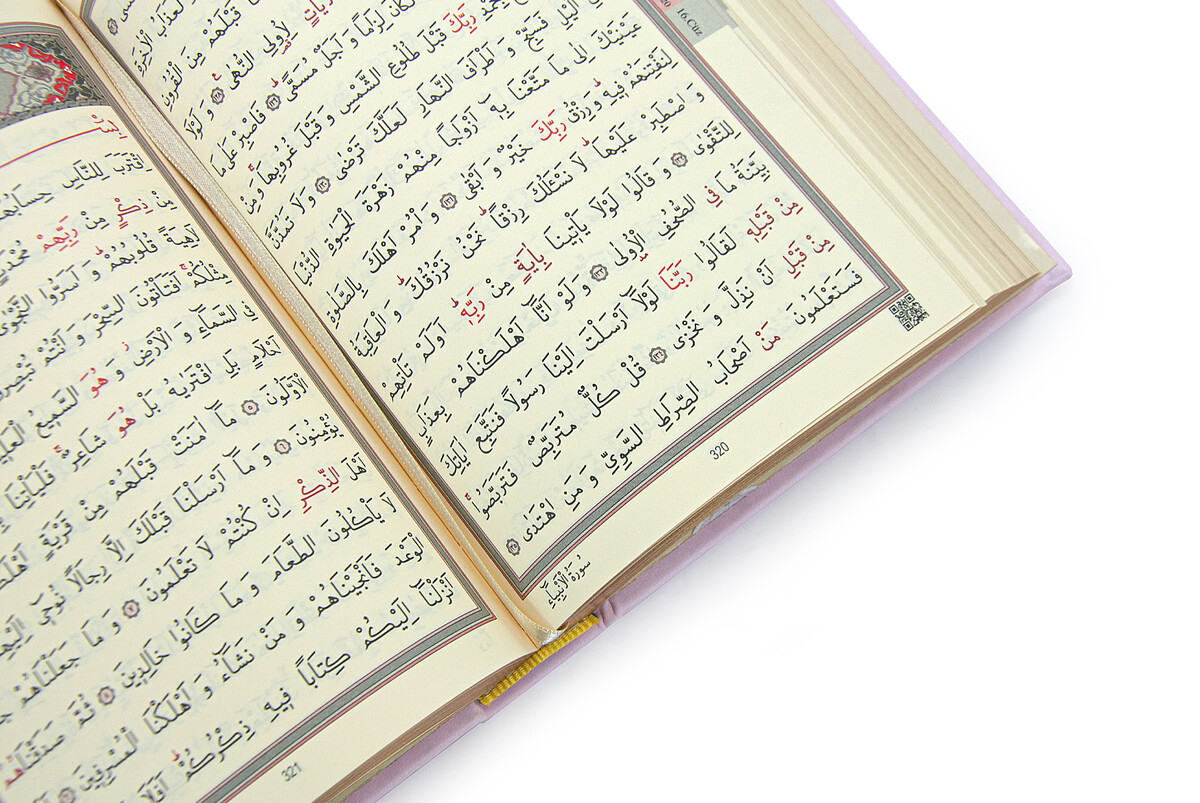 16.Cüz
20
لَعَذَابُ الْاٰخِرَةِ
قَبْلَهُمْ مِنَ الْقُرُونِ
لِاُولِي النُّهٰى ١٢٨ وَ لَوْلَا
لَكَانَ لِزَامًا وَ اَجَلٌ مُسَمًّى ١٢٩ فَاصْبِرْ عَلٰى مَا
رَبِّكَ قَبْلَ طُلُوعِ الشَّمْسِ وَ قَبْلَ غُرُوبِهَا وَ مِنْ
الَّيْلِ فَسَبِّحْ وَ اَطْرَافَ النَّهَارِ لَعَلَّكَ تَرْضٰى ١٣٠ وَ لَا تَمُدَّنَّ
عَيْنَيْكَ اِلٰى مَا مَتَّعْنَا بِه۪ٓ اَزْوَاجًا مِنْهُمْ زَهْرَةَ الْحَيٰوةِ الدُّنْيَا
لِنَفْتِنَهُمْ ف۪يهِ وَ رِزْقُ رَبِّكَ خَيْرٌ وَ اَبْقٰى ١٣١ وَ أْمُرْ اَهْلَكَ بِالصَّلٰوةِ
وَ اصْطَبِرْ عَلَيْهَا لَا نَسْـَٔلُكَ رِزْقًا نَحْنُ نَرْزُقُكَ وَ الْعَاقِبَةُ
لِلتَّقْوٰى ١٣٢ وَ قَالُوا لَوْلَا يَأْت۪ينَا بِاٰيَةٍ مِنْ رَبِّه۪ اَوَلَمْ تَأْتِهِمْ
بَيِّنَةُ مَا فِي الصُّحُفِ الْاُولٰى ١٣٣ وَ لَوْ اَنَّٓا اَهْلَكْنَاهُمْ بِعَذَابٍ
مِنْ قَبْلِه۪ لَقَالُوا رَبَّنَا لَوْلَٓا اَرْسَلْتَ اِلَيْنَا رَسُولًا فَنَتَّبِعَ اٰيَاتِكَ
مِنْ قَبْلِ اَنْ نَذِلَّ وَ نَخْزٰى ١٣٤ قُلْ كُلٌّ مُتَرَبِّصٌ فَتَرَبَّصُوا
فَسَتَعْلَمُونَ مَنْ اَصْحَابُ الصِّرَاطِ السَّوِيِّ وَ مَنِ اهْتَدٰى ١٣٥
320
سُورَةُ الْاَنْبِيَاءِ
اِقْتَرَبَ لِلنَّاسِ حِسَابُهُمْ
مِنْ ذِكْرٍ مِنْ رَبِّهِمْ مُحْدَثٍ
لَاهِيَةً قُلُوبُهُمْ وَ اَسَرُّوا النَّجْوَى
مِثْلُكُمْ اَفَتَأْتُونَ السِّحْرَ وَ اَنْتُمْ تُبْصِرُونَ
فِي السَّمَٓاءِ وَ الْاَرْضِ وَ هُوَ السَّم۪يعُ الْعَل۪يمُ
اَحْلَامٍ بَلِ افْتَرٰيهُ بَلْ هُوَ شَاعِرٌ فَلْيَأْتِنَا
الْاَوَّلُونَ ٥ مَٓا اٰمَنَتْ قَبْلَهُمْ مِنْ قَرْيَةٍ
يُؤْمِنُونَ ٦ وَ مَٓا اَرْسَلْنَا قَبْلَكَ اِلَّا رِجَالًا نُوح۪ٓي اِلَيْهِمْ
اَهْلَ الذِّكْرِ اِنْ كُنْتُمْ لَا تَعْلَمُونَ ٧ وَ مَا جَعَلْنَاهُمْ
لَا يَأْكُلُونَ الطَّعَامَ وَ مَا كَانُوا خَالِد۪ينَ ٨ ثُمَّ صَدَقْنَاهُمُ
الْوَعْدَ فَاَنْجَيْنَاهُمْ وَ مَنْ نَشَٓاءُ وَ اَهْلَكْنَا الْمُسْرِف۪ينَ ٩
اَنْزَلْنَٓا اِلَيْكُمْ كِتَابًا ف۪يهِ ذِكْرُكُمْ اَفَلَا
321